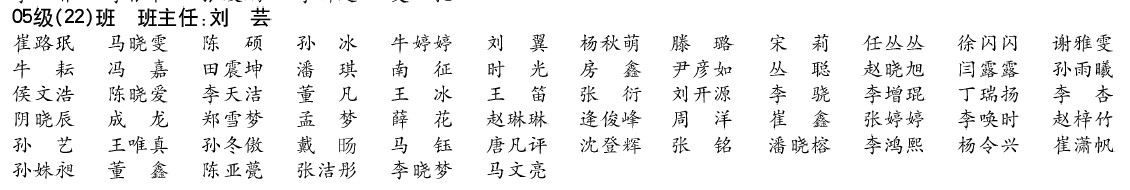 05级(22)班 班主任:刘 芸
崔路珉 马晓雯 陈 硕 孙 冰 牛婷婷 刘 翼 杨秋萌 滕 璐 宋 莉 任丛丛 徐闪闪 谢雅雯
牛 耘 冯 嘉 田震坤 潘 琪 南 征 时 光 房 鑫 尹彦如 丛 聪 赵晓旭 闫露露 孙雨曦
侯文浩 陈晓爱 李天洁 董 凡 王 冰 王 笛 张 衍 刘开源 李 骁 李增琨 丁瑞扬 李 杏
阴晓辰 成 龙 郑雪梦 孟 梦 薛 花 赵琳琳 逄俊峰 周 洋 崔 鑫 张婷婷 李唤时 赵梓竹
孙 艺 王唯真 孙冬傲 戴 旸 马 钰 唐凡评 沈登辉 张 铭 潘晓榕 李鸿熙 杨令兴 崔潇帆
孙姝昶 董 鑫 陈亚甍 张洁彤 李晓梦 马文亮